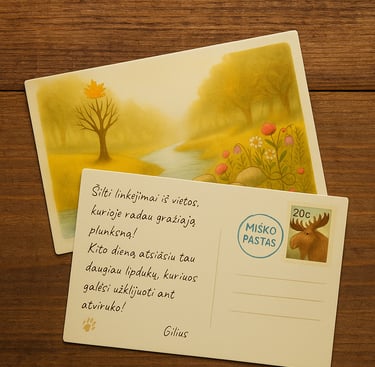 Šilti linkėjimai iš vietos,
kurioje radau gražiają
plunksną!
Kito dieną atsiąsiu tau
daugiau lipdukų, kuriuos
galėsi užklijuoti ant
atviruko!
Gilius
MIŠKO
PASTAS
20c